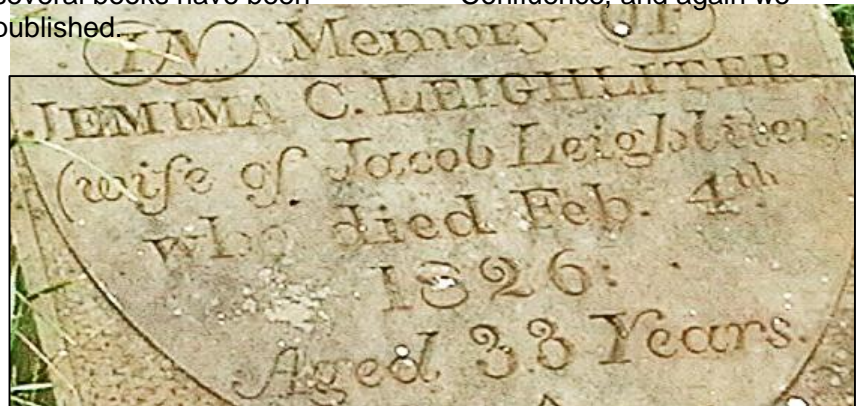 several books have been
Confluence, and again we
published.
IN Memory OF
JEMIMA C. LEIGHLITER
(wife of Jacob Leighliter)
who died Feb. 4th
1826:
Aged 33 Years.